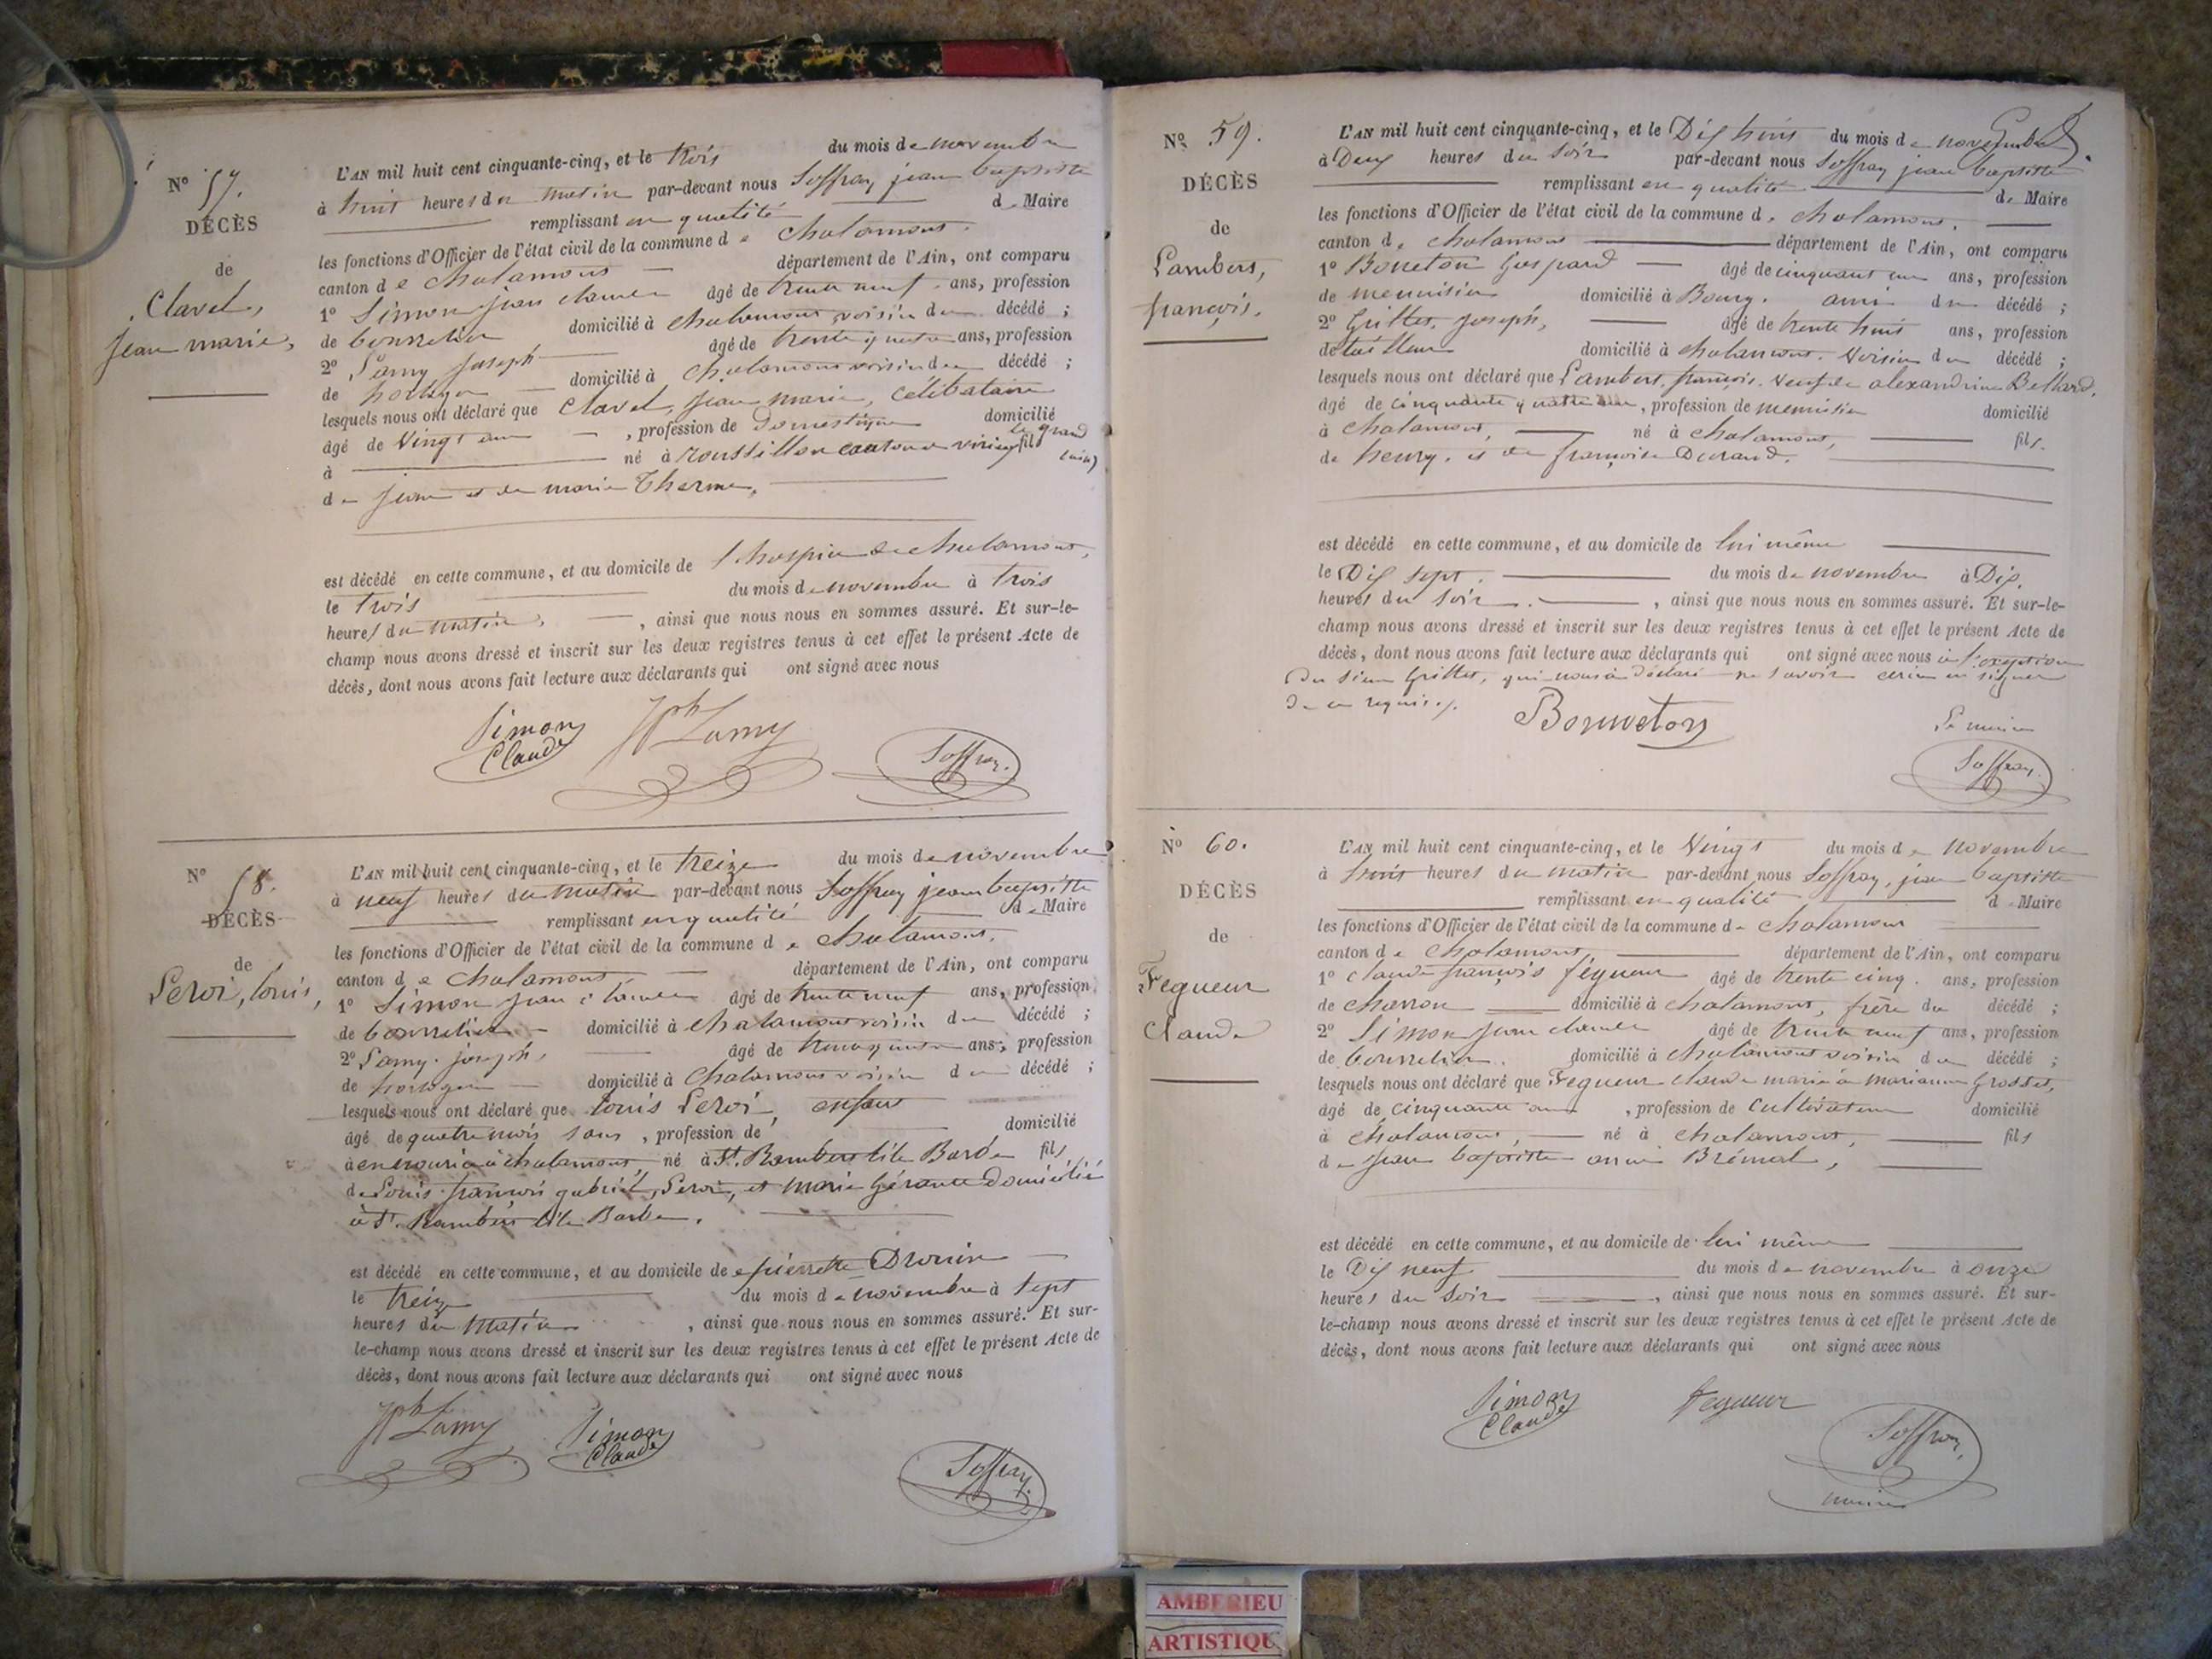 N° 57.
DÉCÈS
de
Clavel,
Jean marie,
L'AN mil huit cent cinquante-cinq, et le trois du mois de novembre
à huit heures du matin par-devant nous Soffray jean baptiste
remplissant en qualité de Maire
les fonctions d'Officier de l'état civil de la commune de chalamont.
canton de chalamont département de l'Ain, ont comparu
1° Simon jean claude âgé de trente neuf ans, profession
de bourrelier domicilié à chalamont voisin du décédé ;
2° Lamy joseph âgé de trente quatre ans, profession
de horloger domicilié à chalamont voisin du décédé ;
lesquels nous ont déclaré que Clavel, jean marie, célibataire
âgé de vingt ans , profession de Domestique domicilié
à né à roussillon canton de virieu le grand fils (ain)
de jean et de marie Therme,
est décédé en cette commune, et au domicile de l'hospice de chalamont,
le trois du mois de novembre à trois
heures du matin, , ainsi que nous nous en sommes assuré. Et sur-le-
champ nous avons dressé et inscrit sur les deux registres tenus à cet effet le présent Acte de
décès, dont nous avons fait lecture aux déclarants qui ont signé avec nous
Simon
Claude
Jph Lamy
Soffray.
N° 58.
DÉCÈS
de
Leroi, louis,
L'AN mil huit cent cinquante-cinq, et le treize du mois de novembre
à neuf heures du matin par-devant nous Soffray jean baptiste
remplissant en qualité de Maire
les fonctions d'Officier de l'état civil de la commune de chalamont.
canton de chalamont département de l'Ain, ont comparu
1° Simon jean claude âgé de trente neuf ans, profession
de bourrelier domicilié à chalamont voisin du décédé ;
2° Lamy joseph, âgé de trente quatre ans, profession
de horloger domicilié à chalamont voisin du décédé ;
lesquels nous ont déclaré que louis Leroi, enfant
âgé de quatre mois , profession de domicilié
à en nourice à chalamont, né à St. Rambert l'île Barbe fils
de Louis françois gabriel, Leroi, et marie domicilié
à St. Rambert l'île Barbe.
est décédé en cette commune, et au domicile de pierrette Drouin
le treize du mois de novembre à sept
heures du matin , ainsi que nous nous en sommes assuré. Et sur-
le-champ nous avons dressé et inscrit sur les deux registres tenus à cet effet le présent Acte de
décès, dont nous avons fait lecture aux déclarants qui ont signé avec nous
Jph Lamy
Simon
Claude
Soffray
N° 59.
DÉCÈS
de
Lambert,
françois.
L'AN mil huit cent cinquante-cinq, et le Dix huit du mois de novembre
à Deux heures du soir par-devant nous Soffray jean baptiste
remplissant en qualité de Maire
les fonctions d'Officier de l'état civil de la commune de chalamont.
canton de chalamont département de l'Ain, ont comparu
1° Bonneton Gaspard âgé de cinquante un ans, profession
de menuisier domicilié à Bourg. ami du décédé ;
2° Grillet, joseph, âgé de trente huit ans, profession
de tailleur domicilié à chalamont. voisin du décédé ;
lesquels nous ont déclaré que Lambert, françois. veuf de alexandrine Bellard.
âgé de cinquante quatre ans, profession de menuisier domicilié
à chalamont, né à chalamont, fils.
de henry. et de françoise Durand.
est décédé en cette commune, et au domicile de lui même
le Dix sept. du mois de novembre à Dix.
heures du soir. , ainsi que nous nous en sommes assuré. Et sur-le-
champ nous avons dressé et inscrit sur les deux registres tenus à cet effet le présent Acte de
décès, dont nous avons fait lecture aux déclarants qui ont signé avec nous à l'exeption
du sieur Grillet, qui nous à déclaré ne savoir écrire ni signer
de ce requis./.
Bonneton
Le maire
Soffray.
N° 60.
DÉCÈS
de
Fegueur
Claude
L'AN mil huit cent cinquante-cinq, et le vingt du mois de novembre
à huit heures du matin par-devant nous Soffray, jean baptiste
remplissant en qualité de Maire
les fonctions d'Officier de l'état civil de la commune de chalamont
canton de chalamont, département de l'Ain, ont comparu
1° claude françois fégueur âgé de trente cinq. ans, profession
de charron domicilié à chalamont, frère du décédé ;
2° Simon jean claude âgé de trente neuf ans, profession
de bourrelier. domicilié à chalamont voisin du décédé ;
lesquels nous ont déclaré que Fegueur claude marié à mariane Grosset,
âgé de cinquante ans , profession de cultivateur domicilié
à chalamont, né à chalamont, fils
de jean baptiste anne Brémal,
est décédé en cette commune, et au domicile de lui même
le Dix neuf du mois de novembre à onze
heures du soir , ainsi que nous nous en sommes assuré. Et sur-
le-champ nous avons dressé et inscrit sur les deux registres tenus à cet effet le présent Acte de
décès, dont nous avons fait lecture aux déclarants qui ont signé avec nous
Simon
Claude
Fegueur
Soffray.
maire
AMBERIEU
ARTISTIQU